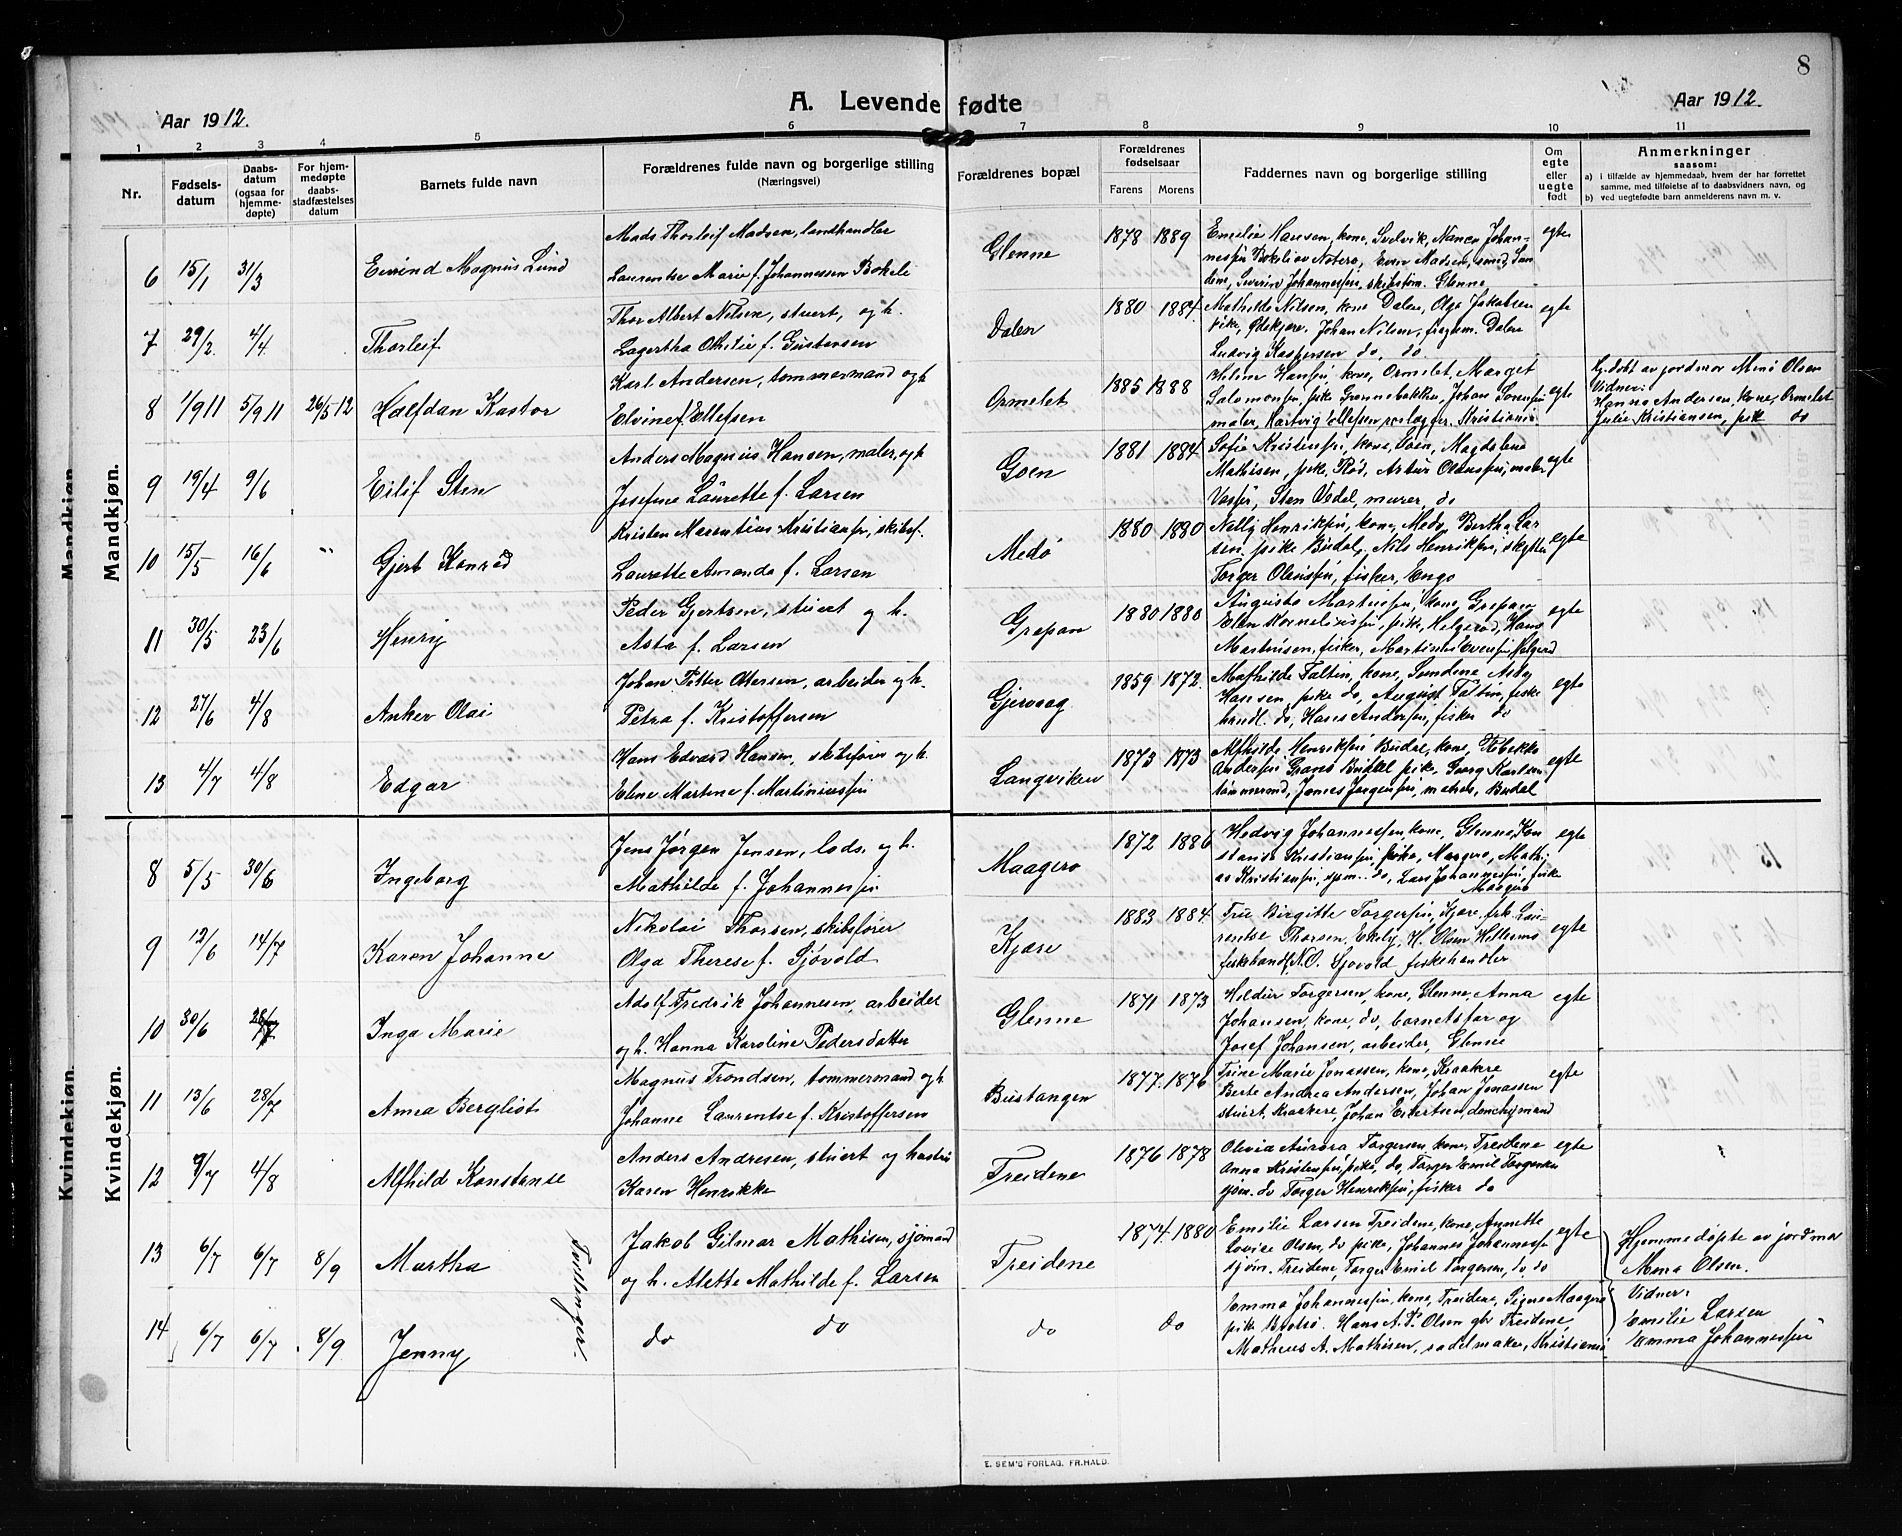 8
A. Levende fødte
Aar 1912.
Aar 1912.
1 2 3 4 5 6 7 8 9 10 11
Nr.
Fødsels-
datum
Daabs-
datum
(ogsaa for
hjemme-
døpte)
For hjem-
medøpte
daabs-
stadfæstelses
datum
Barnets fulde navn
Forældrenes fulde navn og borgerlige stilling
(Næringsvei)
Forældrenes bopæl
Forældrenes
fødselsaar
Farens Morens
Faddernes navn og borgerlige stilling
Om
egte
eller
uegte
født
Anmerkninger
saasom:
a) i tilfælde av hjemmedaab, hvem der har forrettet
samme, med tilføielse af to daabsvidners navn, og
b) ved uegtefødte barn anmelderens navn m. v.
Mandkjøn.
Mandkjøn.
Mads Thorleif Madsen, landhandler
6 15/1 31/3 Eivind Magnus Lund
Laurentze Marie f. Johannessen Bakeli
Glenne 1878 1889
Emilie Hansen, kone, Svelvik, Nanca Johan-
egte
Thor Albert Nilsen, stuert, og h.
7 29/2. 4/4. Thorleif
Lagertha Othilie f. Gustavsen
Dalen 1880 1884
Mathilde Nilsen, kone Dalen, Olga Jakobsen
pike, Johan Nilsen, Dalen
Ludvig Kaspersen do, do
egte
Karl Andersen, tømmermand og h
8 1/9 11 5/9 11 26/5 12 Halfdan Kastor
Elvine f. Ellefsen
Ormelet 1885 1888
Hansen, kone, Ormelet, Margot
maler, Hartvig Ellefsen, Kristiania
egte
Hj.døbt av jordmor Mina Olsen
Vidner:
Hanna Andersen, kone, Ormelet
Julie Kristiansen, pike do
Anders Magnus Hansen, maler, og h
9 19/4 9/6 Eilif Sten
Josefine Laurette f. Larsen
Goen 1881 1884
Sofie Kristensen, kone, Goen, Magdalena
Mathisen, pike, Rød, Artur Olausen, maler
Sten Vedel, murer, do
egte
Kristen Marentius Kristiansen, skibsf.
10 15/5 16/6 " Gjert Konrad
Laurette Amanda f. Larsen
Medø 1880 1880
Nelly Henriksen, kone, Medø, Bertha Lar-
sen, pike Budal, Nils Henriksen,
Torger Olausen, fisker, Engø
egte
Peder Gjertsen, stuert og h.
11 30/5 23/6 Henry
Asta f. Larsen
Grepan 1880 1880
Augusta Martinsen, kone, Grepan
Elen Kornelissen, pike, Helgerød, Hans
Martinsen, fisker,
egte
Johan Petter Ottersen, arbeider og h.
12 27/6 4/8 Anker Olai
Petra f. Kristoffersen
Gjervaag 1859 1872.
Mathilde Faltin, kone, Sundene,
Hansen, pike do, August Faltin, fiske
handl. do, Hans Andersen, fisker do
egte
Hans Edvard Hansen, skibsfører og h.
13 4/7 4/8 Edgar
Eline Martine f. Martiniussen
Langviken 1873 1873
Alfhilde Henriksen Budal, kone,
Andersen Budal pike, Georg Karlsen
tømmermd, James Jørgensen, matros, Budal
egte
Kvindekjøn.
Kvindekjøn.
Jens Jørgen Jensen, lods, og h.
8 5/5 30/6 Ingeborg
Mathilde f. Johannessen
Maagerø 1872 1886
Hedvig Johannessen, kone, Glenne, Kon
stanse Kristiansen, pike, Maagerø, Mathi-
as Kristiansen, sjøm. do, Lars Johannessen, fisker
Maagerø
egte
Nikolai Thorsen, skibsfører
9 12/6 14/7 Karen Johanne
Olga Therese f. Sjøvold
Kjære 1883 1884
Birgitte Torgersen, Kjære, Lau-
rentse Thorsen, Ekely, H. Olsen
fiskehandl, N.O. Sjøvold fiskehandler
egte
Adolf Fredrik Johannesen, arbeider
10 30/6 28/7 Inga Marie
og h. Hanna Karoline Pedersdatter
Glenne 1871 1873
Hildur Torgersen, kone, Glenne, Anna
Johansen, kone, do, barnets far og
Josef Johansen, arbeider, Glenne
egte
Magnus Trondsen, tømmermand og h.
11 13/6 28/7 Anna Bergliot
Johanne Laurentse f. Kristoffersen
Bustangen 1877. 1876
Trine Marie Jonassen, kone, Kraakere
Berte Andrea Andersen, Johan Jonassen
stuert, Kraakere, Johan Evertsen
egte
Anders Andresen, stuert og hustru
12 9/7 4/8 Alfhild Konstanse
Karen Henrikke
Treidene 1876 1878
Olivia Aurora Torgersen, kone, Treidene
Anna Kristensen, pike, do, Torger Emil Torgersen
sjøm. do Torger Henriksen, fisker do
egte
Jakob Gilmar Mathisen, sjømand
13 6/7 6/7 8/9 Martha
Tvillinger.
og h. Alette Mathilde f. Larsen
Treidene 1874. 1880
Emilie Larsen Treidene, kone, Annette
Lovise Olsen, do pike, Johannes Johannessen
sjøm. Treidene, Torger Emil Torgersen, do do
egte
Hjemmedøpte av jordmor
Mina Olsen.
14 6/7 6/7 8/9 Jenny
do do
do do
Emma Johannessen, kone, Treidene, Signe Maagerø
pike Hans A. P. Olsen Treidene,
Matheus A. Mathisen, sadelmaker, Kristiania
Vidner:
Emilie Larsen
Emma Johannessen
E. SEM'S FORLAG, FR.HALD.